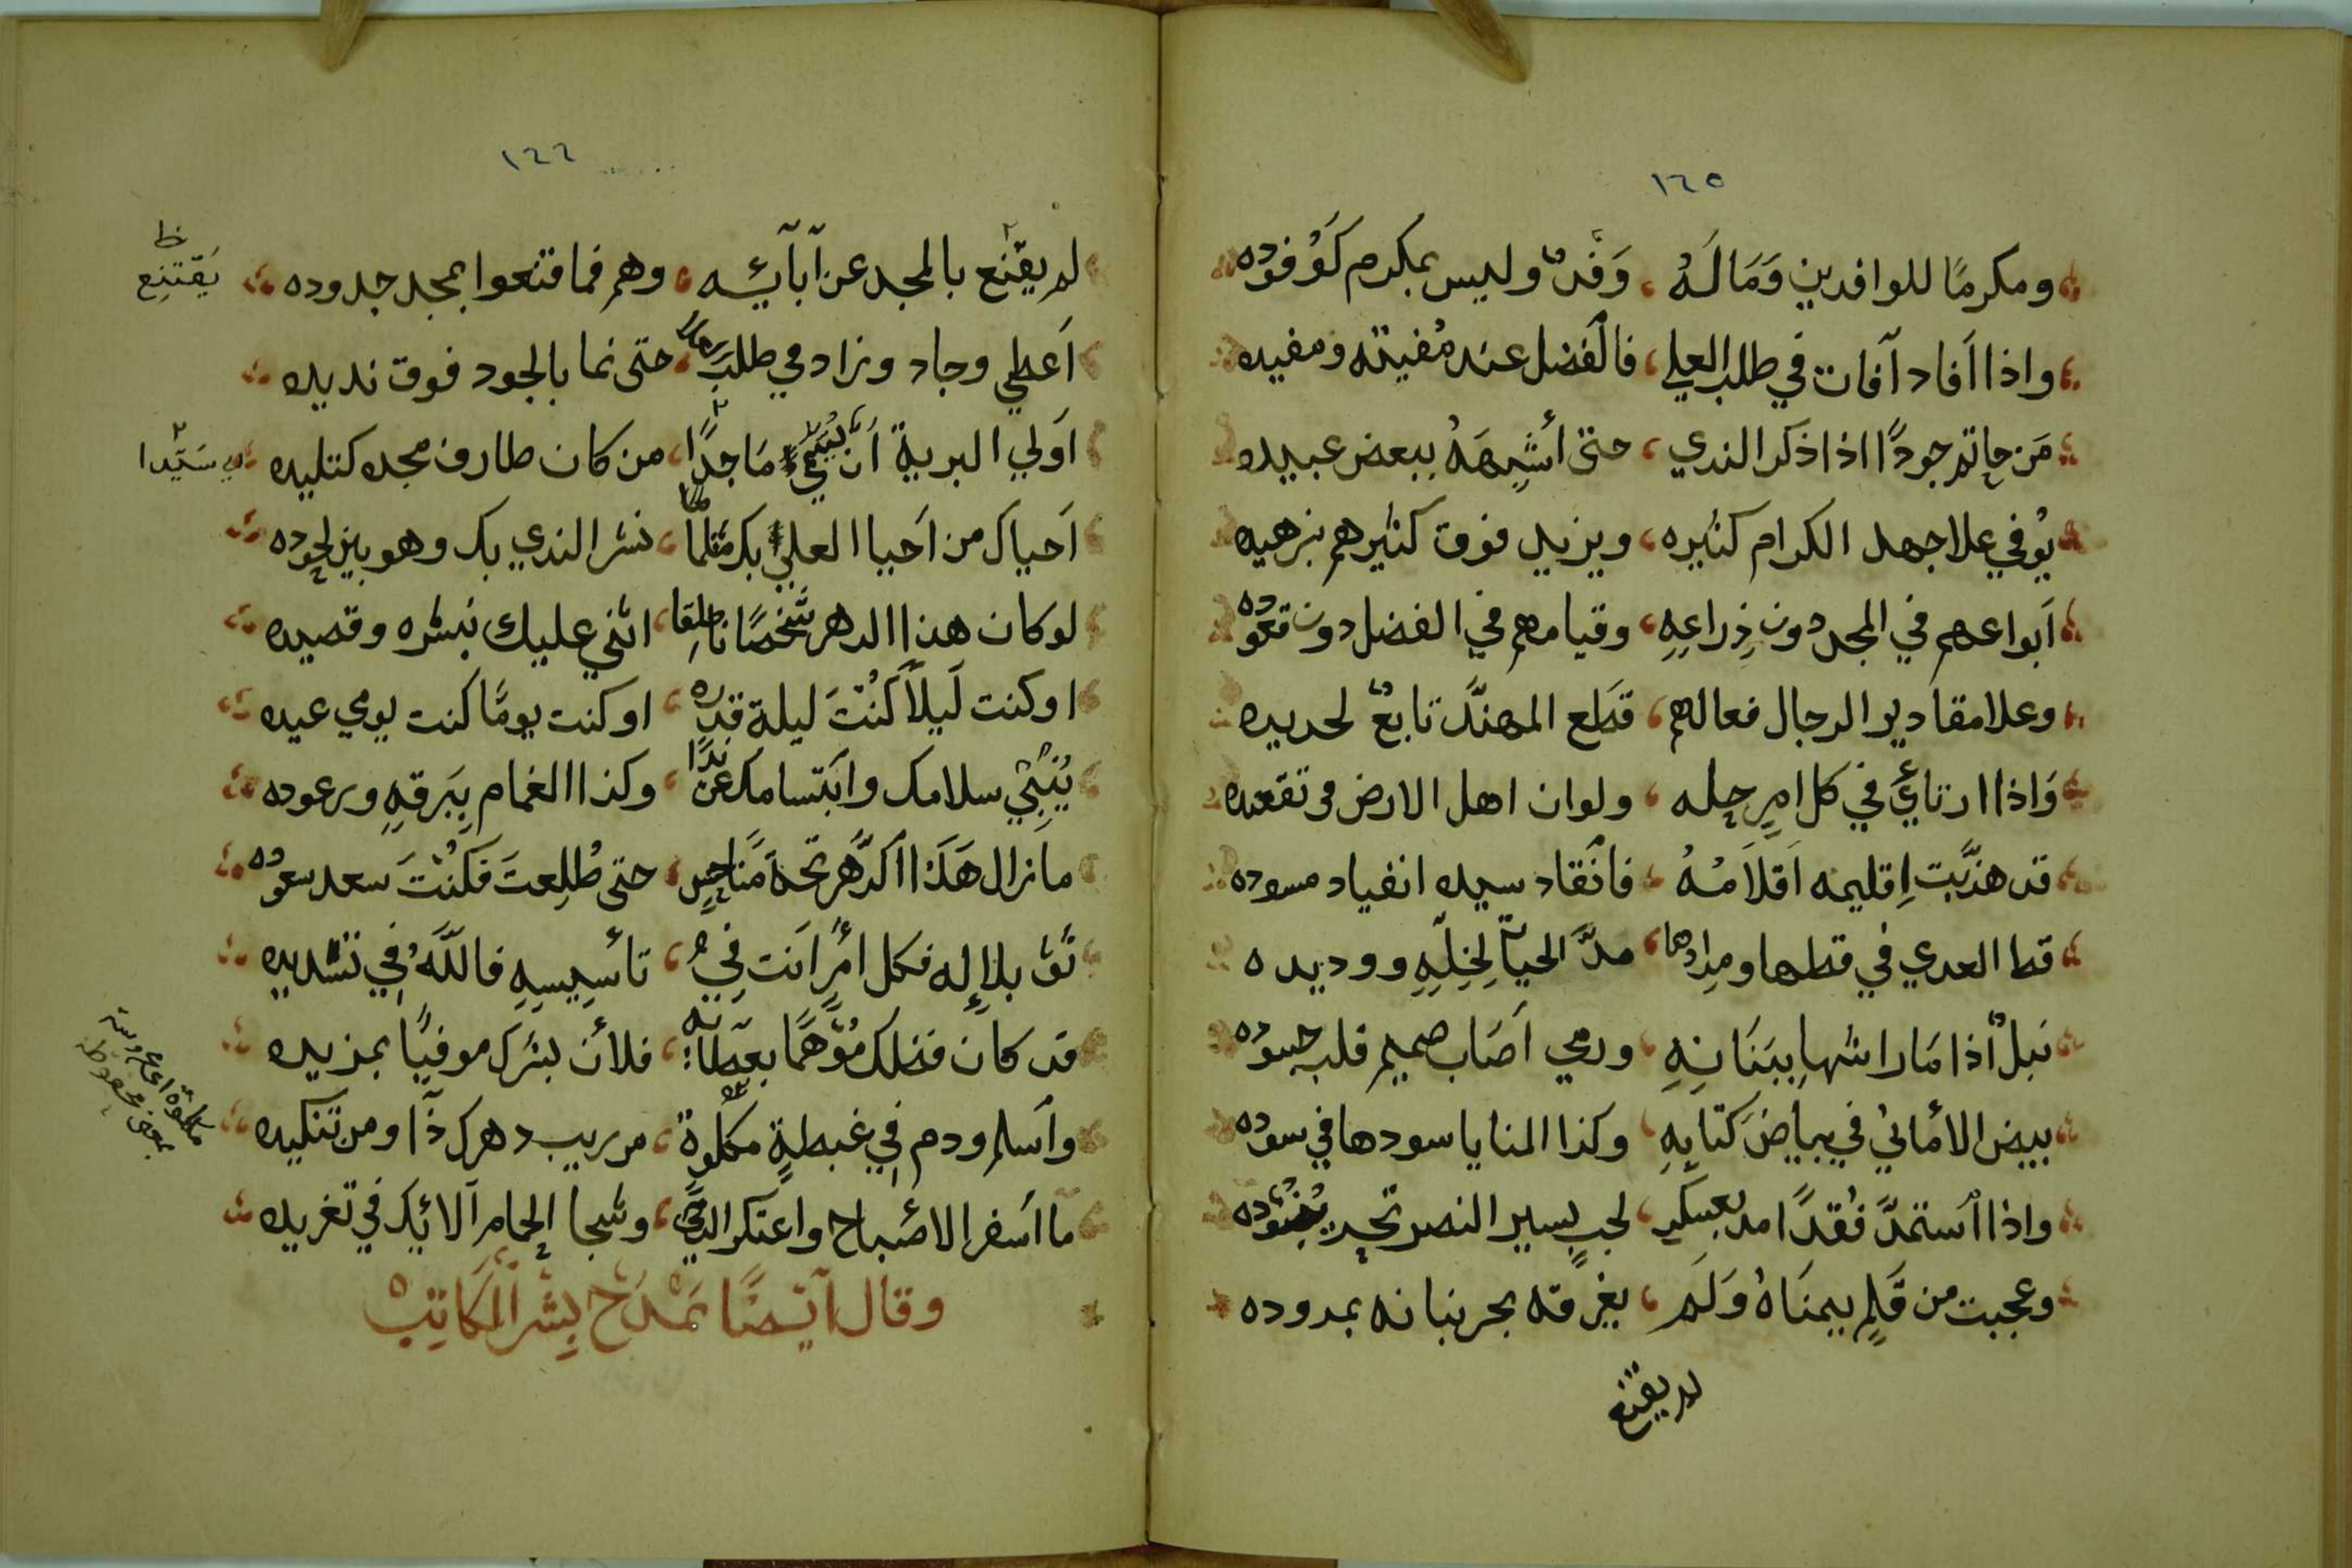 ١٦٥
ومكرمًا للوافدين وَمَا لَهُ ، وَفْدٌ وليس بمكرم كَوُفوده
واذا اَفاد آفات في طلب العلي ، فالفضل عند مُفيته ومفيده
مَن حاتم جودًا اذا ذكر الندي ، حتى أشبهَهُ ببعض عبيده
يُوفي علا جهد الكرام كثيره ، ويزيد فوق كثيرهم بزهيده
اَبواعهم في المجد دون ذِراعِهِ ، وقيامهم في الفضل دون قعوده
وعلا مقادير الرجال فعالهم ، قَطع المهنَّد تابعٌ لحديده
وَاذا ارتاي في كل امرٍ حله ، ولو ان اهل الارض في تقعده
قد هذَّبت اِقليمه اَقلاَمُهُ ، فانقاد سيده انقياد مسوده
قط العدي في قطها ومِدادها ، مدَّ الحيا لِخِلِّهِ ووديده
نَبلٌ اذا مَا راشها ببَنَانِهِ ، ورمي اَصَاب صميم قلب حسوده
بيض الأماني في بياض كتابِهِ ، وكذا المنايا سودها في سوده
واذا اُستمدَّ فُقدًا امد بعسكرٍ ، لجبٍ يسير النصر تحت بنُوده
وعجبت من قَلمٍ بيمنَاهُ وَلَم ، يغرقه بحر بنانه بمدوده
لم يقتنع
١٦٦
لم يقتنع بالمجد عن آبآئِه ، وهم فما قنعوا بمجد جدوده
يَقتنِع
اَعطي وجاد وزاد في طلب ، حتى نما بالجود فوق نديده
اَولي البرية اَن ماجدًا ، من كان طارف مجده كتليده
سَيّدا
اَحياك من اَحيا العلي بك ، نشر الندي بك وهو بين لحوده
لو كان هذا الدهر شَخصًا ناطِقا ، اثني عليك بنشره وقصيده
او كنت لَيلاً كُنْتَ ليلة قدره ، او كنت يومًا كنت يومي عيده
يُنبِي سلامك وابتسامك عن ندًا ، وكذا الغمام بِبَرقِهِ ورعوده
ما زال هَذا الدَّهر نَاحسٍ ، حتى طُلِعتَ فَكُنْتَ سعد سعوده
ثَق بلاإله فكل امرٍ اَنت في ، تأسِيسِهِ فاللَّهُ في تشديده
قد كان فضلك مُوَّهمًا بعطائه ، فلأن بشرك موفيًا بمزيده
واسلم ودم فِي غبطةٍ مكلوة ، من ريب دهرك ذا ومن تنكيده
ما اَسفر الاصْباح واعتكر الدجي ، وشجا الحمام الايك في تغريده
وقال آيضًا يَمْدَحُ بِشْرَ الْكَاتِبْ